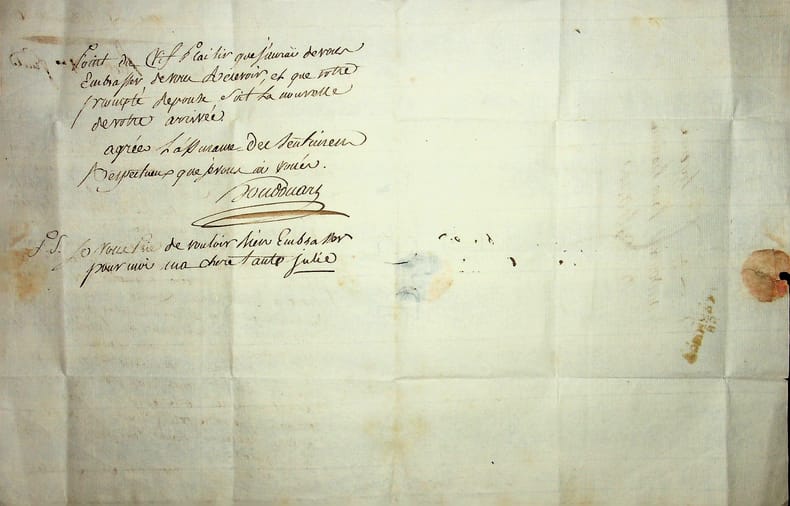 point du vif plaisir que j'aurai de vous
Embrasser de vous Recevoir, et que votre
prompte reponse soit la nouvelle
de votre arrivée
agrées L'assurance des sentiments
Respectueux que je vous ai voués.
P.S. Je vous prie de vouloir bien Embrasser
pour moi ma chere tante julie